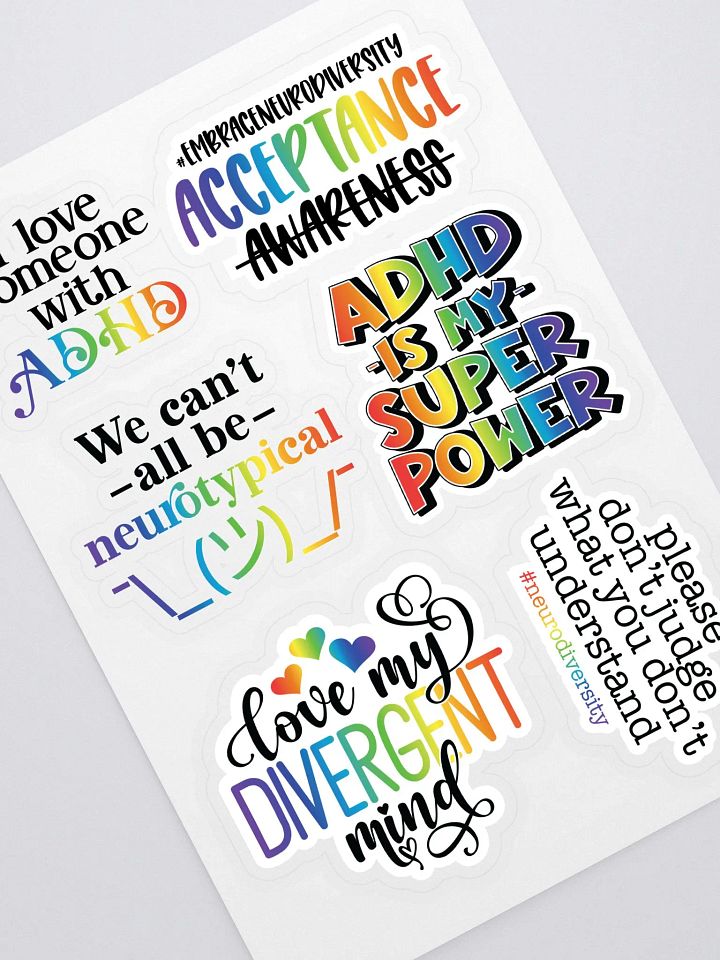 #EMBRACENEURODIVERSITY
ACCEPTANCE
AWARENESS
I love
someone
with
ADHD
ADHD
-IS MY-
SUPER
POWER
We can't
-all be-
neurotypical
¯\_(ツ)_/¯
please
don't judge
what you don't
understand
#neurodiversity
love my
DIVERGENT
mind